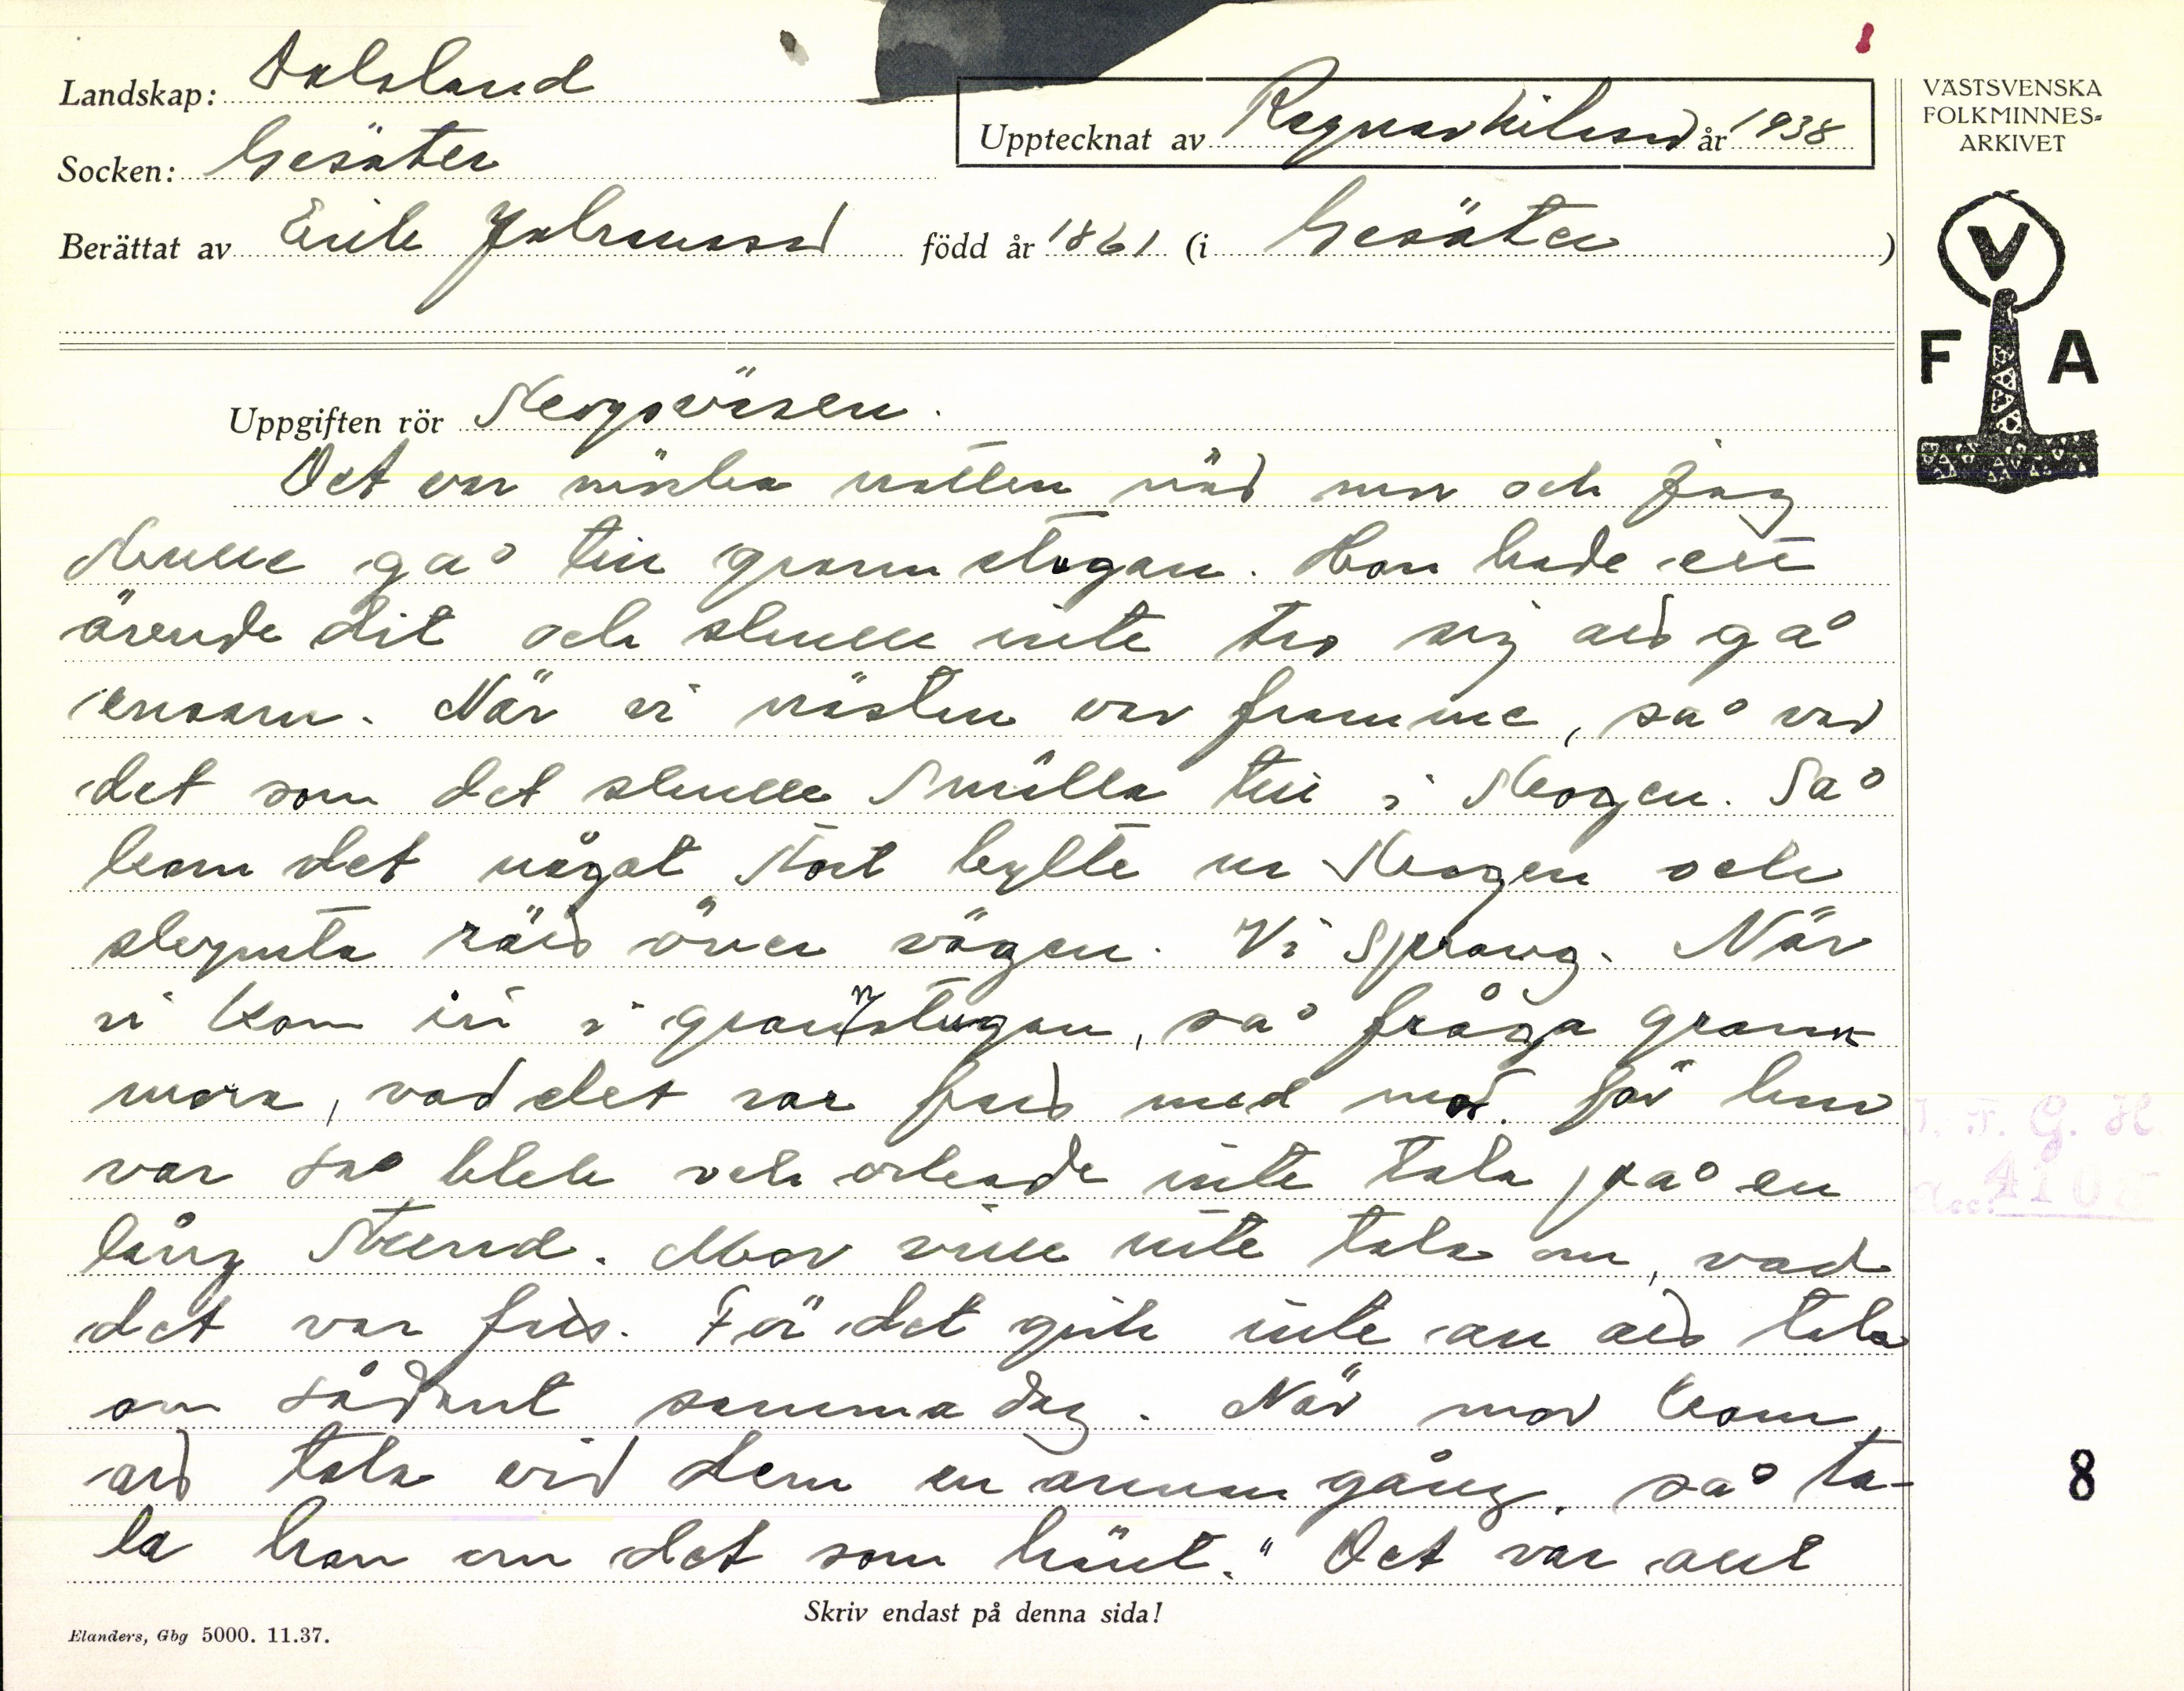 Landskap: Dalsland
Socken: Gesäter
Upptecknat av Ragnar Nilsson år 1938
Berättat av Erik Johansson född år 1861 (i Gesäter)
VÄSTSVENSKA
FOLKMINNES=
ARKIVET
V
F A
Uppgiften rör Skogsväsen.
Det var mörka natten när mor och jag
skulle gå till grannstugan. Hon hade ett
ärende dit och skulle inte tro sig att gå
ensam. När vi nästan var framme, så var
det som det skulle smälla till i skogen. Så
kom det något stort bylte ur skogen och
skejnta rätt över vägen. Vi sprang. När
vi kom in i grannstugan, så fråga grann
mora, vad det var fatt med mor. för hon
var så blek och orkade inte tala på en
lång stund. Mor ville inte tala om, vad
det var fatt. För det gick inte an att tala
om sådant samma dag. När mor kom
att tala vid dem en annan gång, så ta-
la hon om det som hänt." Det var allt
I. F. G. H.
Acc. 4105
8
Skriv endast på denna sida!
Elanders, Gbg 5000. 11.37.